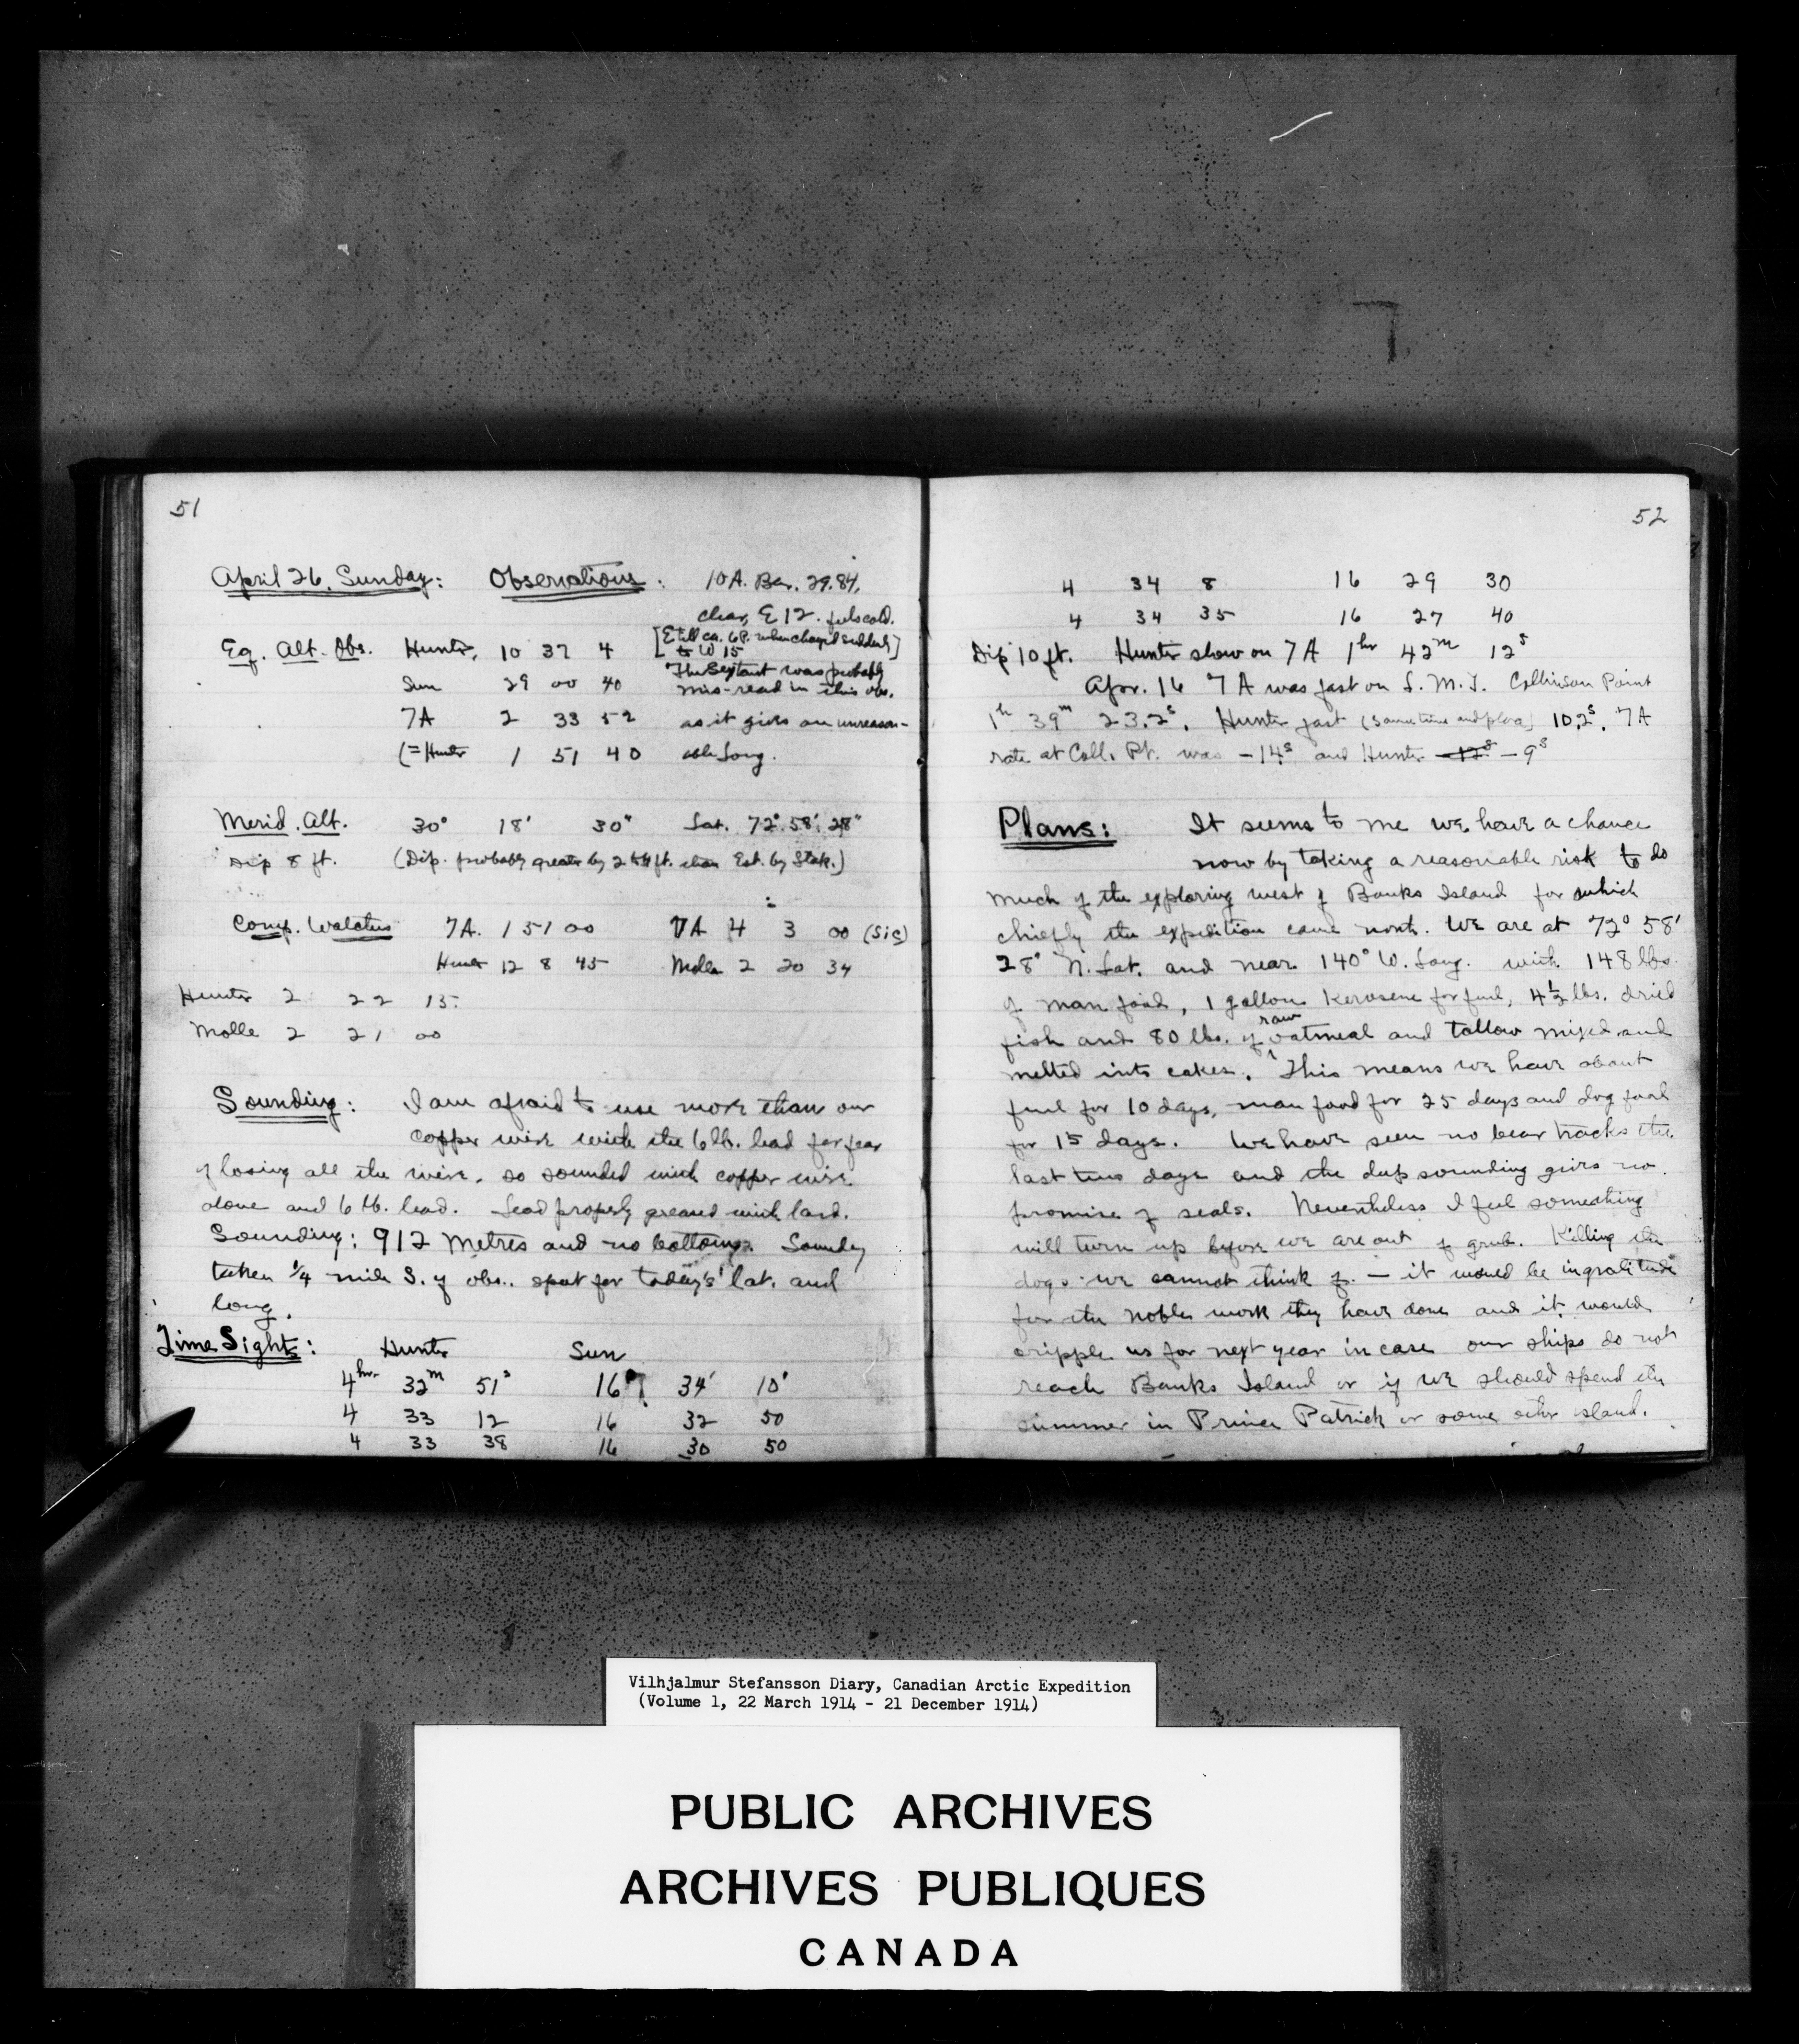 51
April 26, Sunday: Observations: 10 A. Bar. 29.84,
clear, E 12. feels cold.
[E till ca. 6 P. when changed suddenly
to W 15]
Eq. Alt. Obs. Hunter, 10 37 4
The Sextant was probably
Sun 29 00 40 mis-read in this obs.
7A 2 33 52 as it gives an unreason-
(= Hunter 1 51 40 able Long.
Merid. Alt. 30° 18' 30" Lat. 72° 58' 28"
Dip 8 ft. (Dip. probably greater by 2 to 4 ft. than Est. by Stork.)
Comp. Watches 7A. 1 51 00 7A 4 3 00 (sic)
Hunter 12 8 45 Molle 2 20 34
Hunter 2 22 15
Molle 2 21 00
Sounding: I am afraid to use more than our
copper wire with the 6 lb. lead for fear
of losing all the wire, so sounded with copper wire
alone and 6 lb. lead. Lead properly greased with lard.
Sounding: 912 Metres and no bottom. Sounding
taken 1/4 mile S. of obs. spot for today's lat. and
long.
Time Sights: Hunter Sun
4hr 32m 51s 16° 34' 10'
4 33 12 16 32 50
4 33 38 16 30 50
52
4 34 8 16 29 30
4 34 35 16 27 40
Dip 10 ft. Hunter slow on 7A 1hr 42m 12s
Apr. 16 7A was fast on L.M.T. Collinson Point
1h 39m 23.2s. Hunter fast (same time and place) 10.2s. 7A
rate at Coll. Pt. was -14s and Hunter -12s -9s
Plans: It seems to me we have a chance
now by taking a reasonable risk to do
much of the exploring west of Banks Island for which
chiefly the expedition came north. We are at 72° 58'
28" N. Lat. and near 140° W. Long. with 148 lbs.
of man food, 1 gallon Kerosene for fuel, 4½ lbs. dried
fish and 80 lbs. of raw oatmeal and tallow mixed and
melted into cakes. This means we have about
fuel for 10 days, man food for 25 days and dog food
for 15 days. We have seen no bear tracks the
last two days and the deep sounding gives no
promise of seals. Nevertheless I feel something
will turn up before we are out of grub. Killing the
dogs we cannot think of — it would be ingratitude
for the noble work they have done and it would
cripple us for next year in case our ships do not
reach Banks Island or if we should spend the
summer in Prince Patrick or some other island.
Vilhjalmur Stefansson Diary, Canadian Arctic Expedition
(Volume 1, 22 March 1914 - 21 December 1914)
PUBLIC ARCHIVES
ARCHIVES PUBLIQUES
CANADA